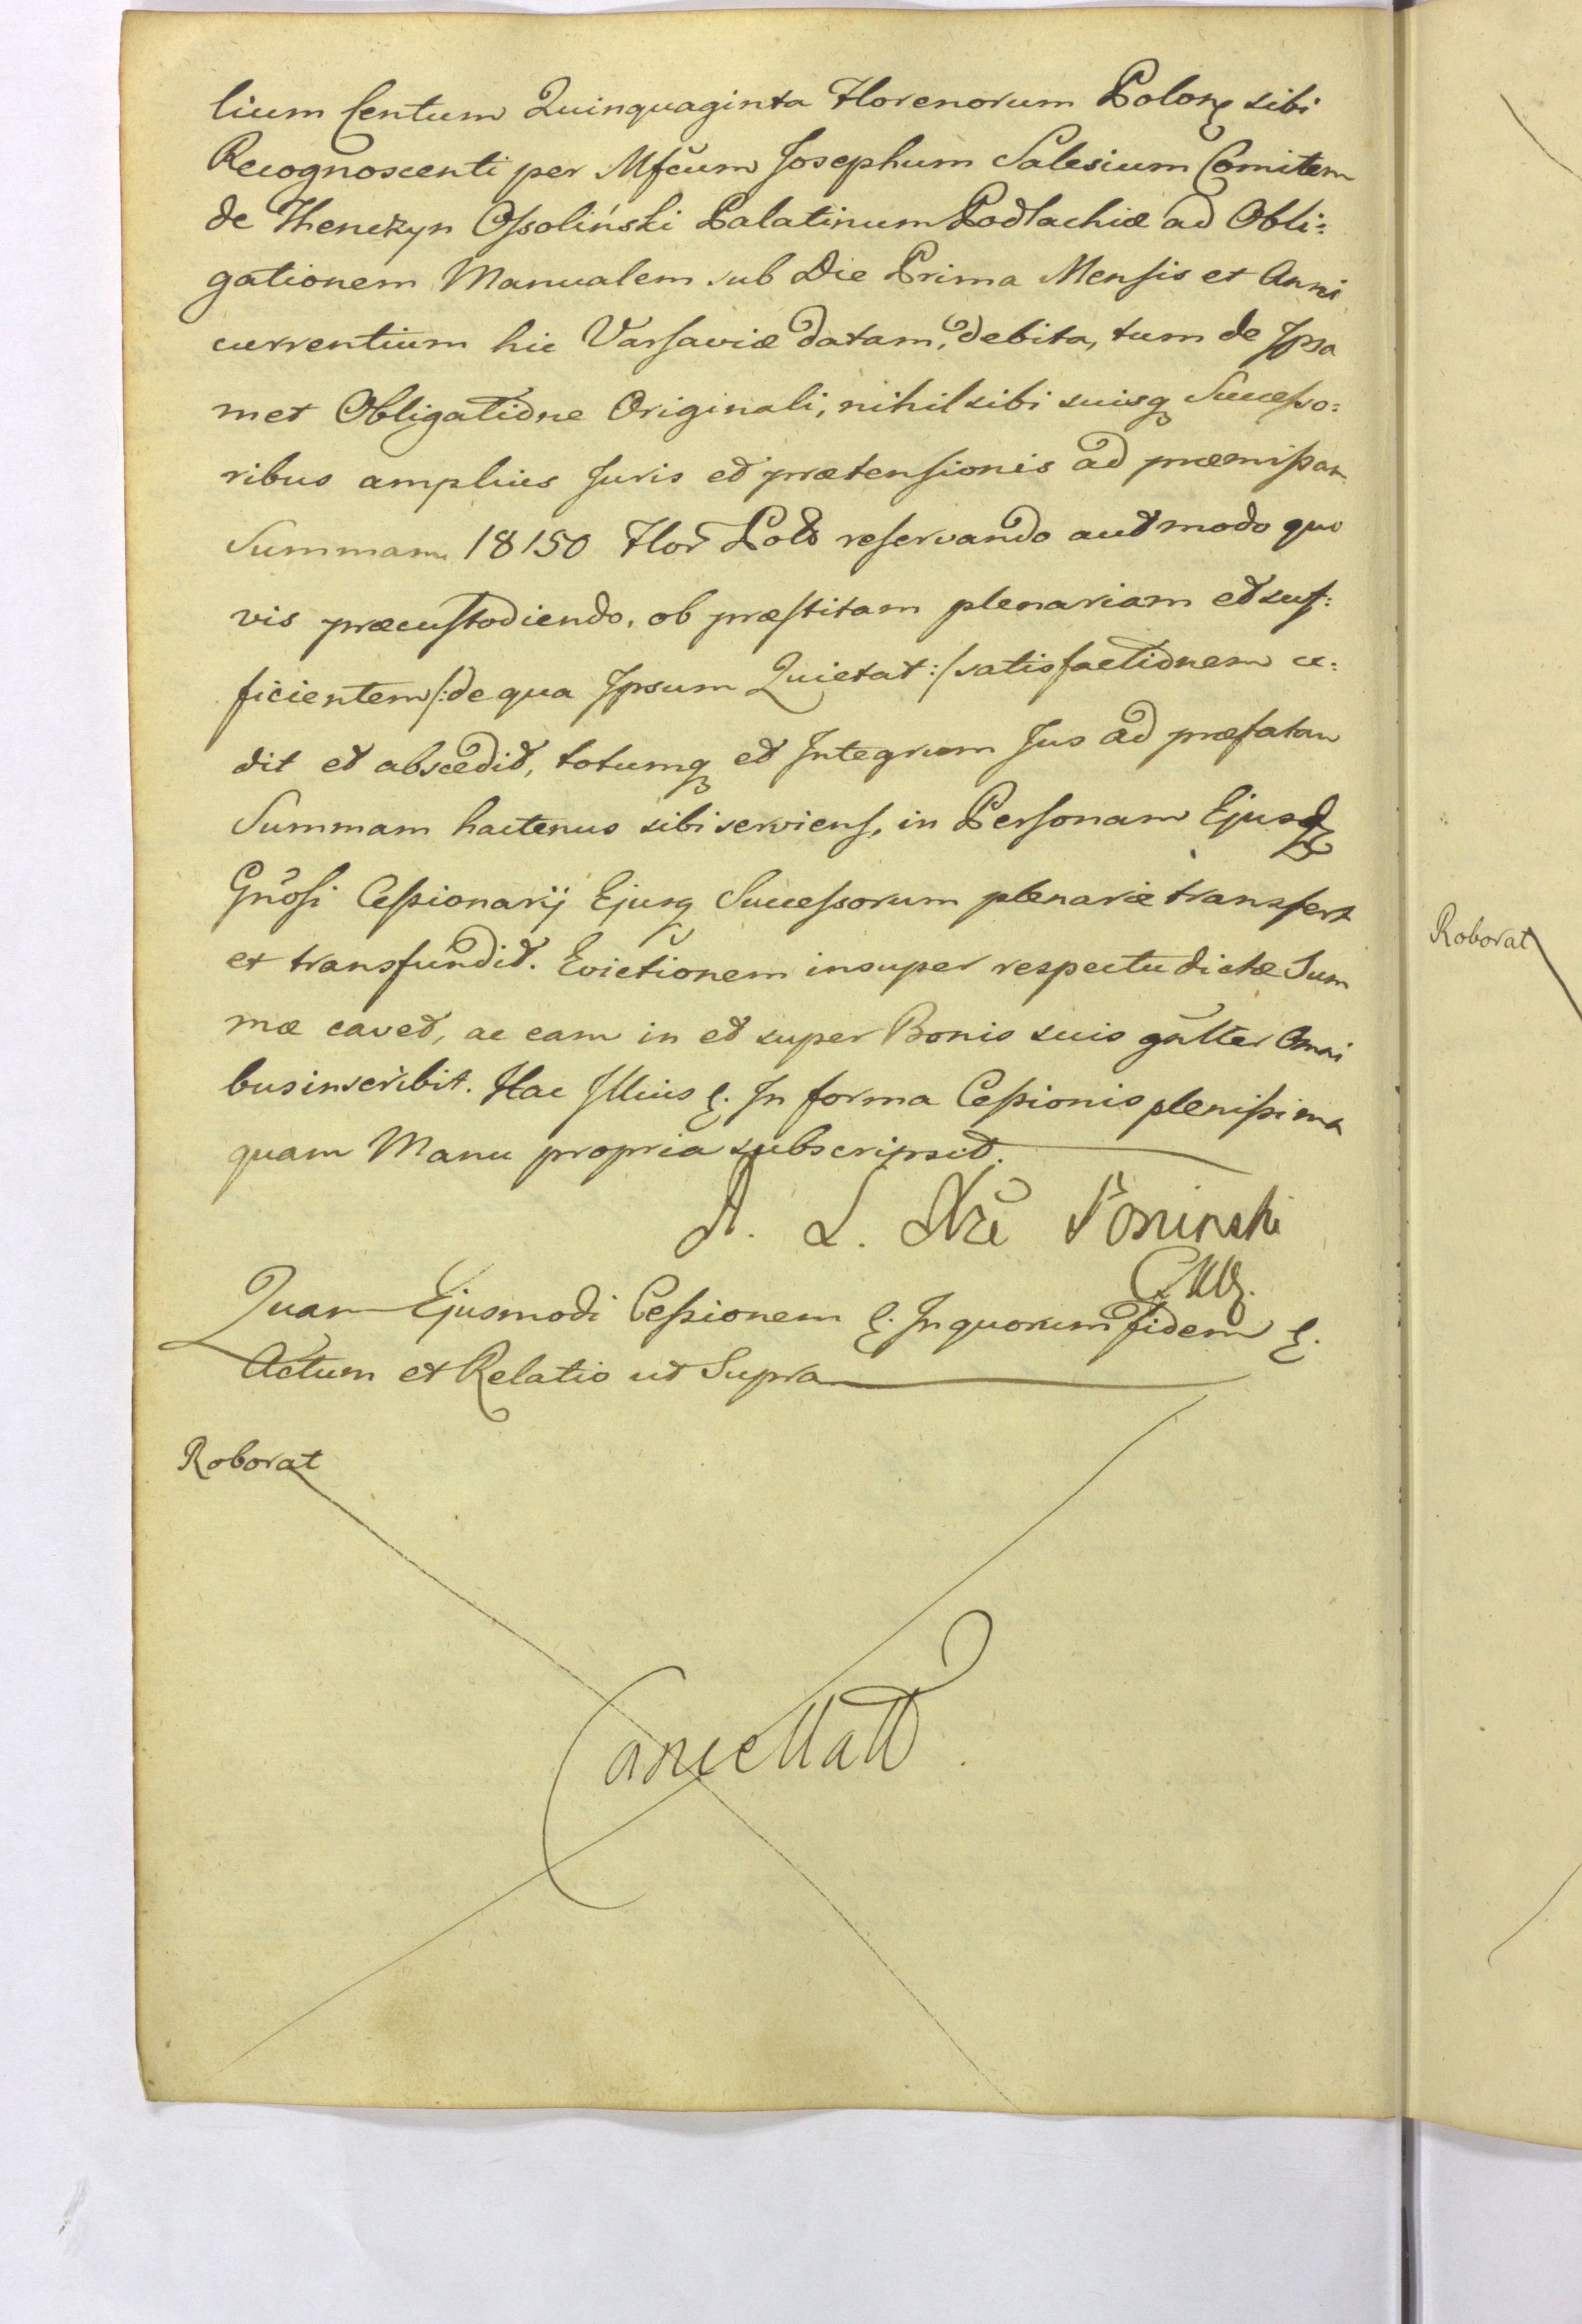 lium Centum Quinquaginta Florenorum Polon sibi
Recognoscenti per Mfcum Josephum Salesium Comitem
de Thenczyn Ossoliński Palatinum Podlachiæ ad Obli:
gationem Manualem sub Die Prima Mensis et Anni
currentium hic Varsaviæ datam, debita, tum de Ipsa
met Obligatione Originali, nihil sibi suisq Successo:
ribus amplius Juris et prætensionis ad præmissam
Summam 18150 Flor Pol reservando aut modo quo
vis præcustodiendo, ob præstitam plenariam et suf:
ficientem /: de qua Ipsum Quietat :/ satisfactionem ce:
dit et abscedit, totumq et Integrum Jus ad præfatam
Summam hactenus sibi serviens, in Personam Ejusd
Gnosi Cessionarij Ejusq Successorum plenarie transfert
et transfundit. Evictionem insuper respectu dictæ Sum
mæ cavet, ac eam in et super Bonis suis gnlter Omni
bus inscribit. Hac Illius &. In forma Cessionis plenissima
quam Manu propria subscripsit.
A. L. Poninski
Quam Ejusmodi Cessionem &. In quorum fidem &.
Actum et Relatio ut Supra
Roborat
Cancellatt.
Roborat